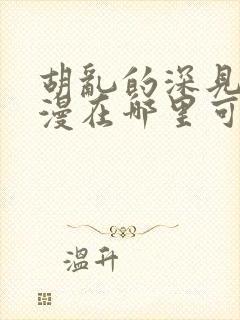 胡乱的深见
漫在哪里可
温升